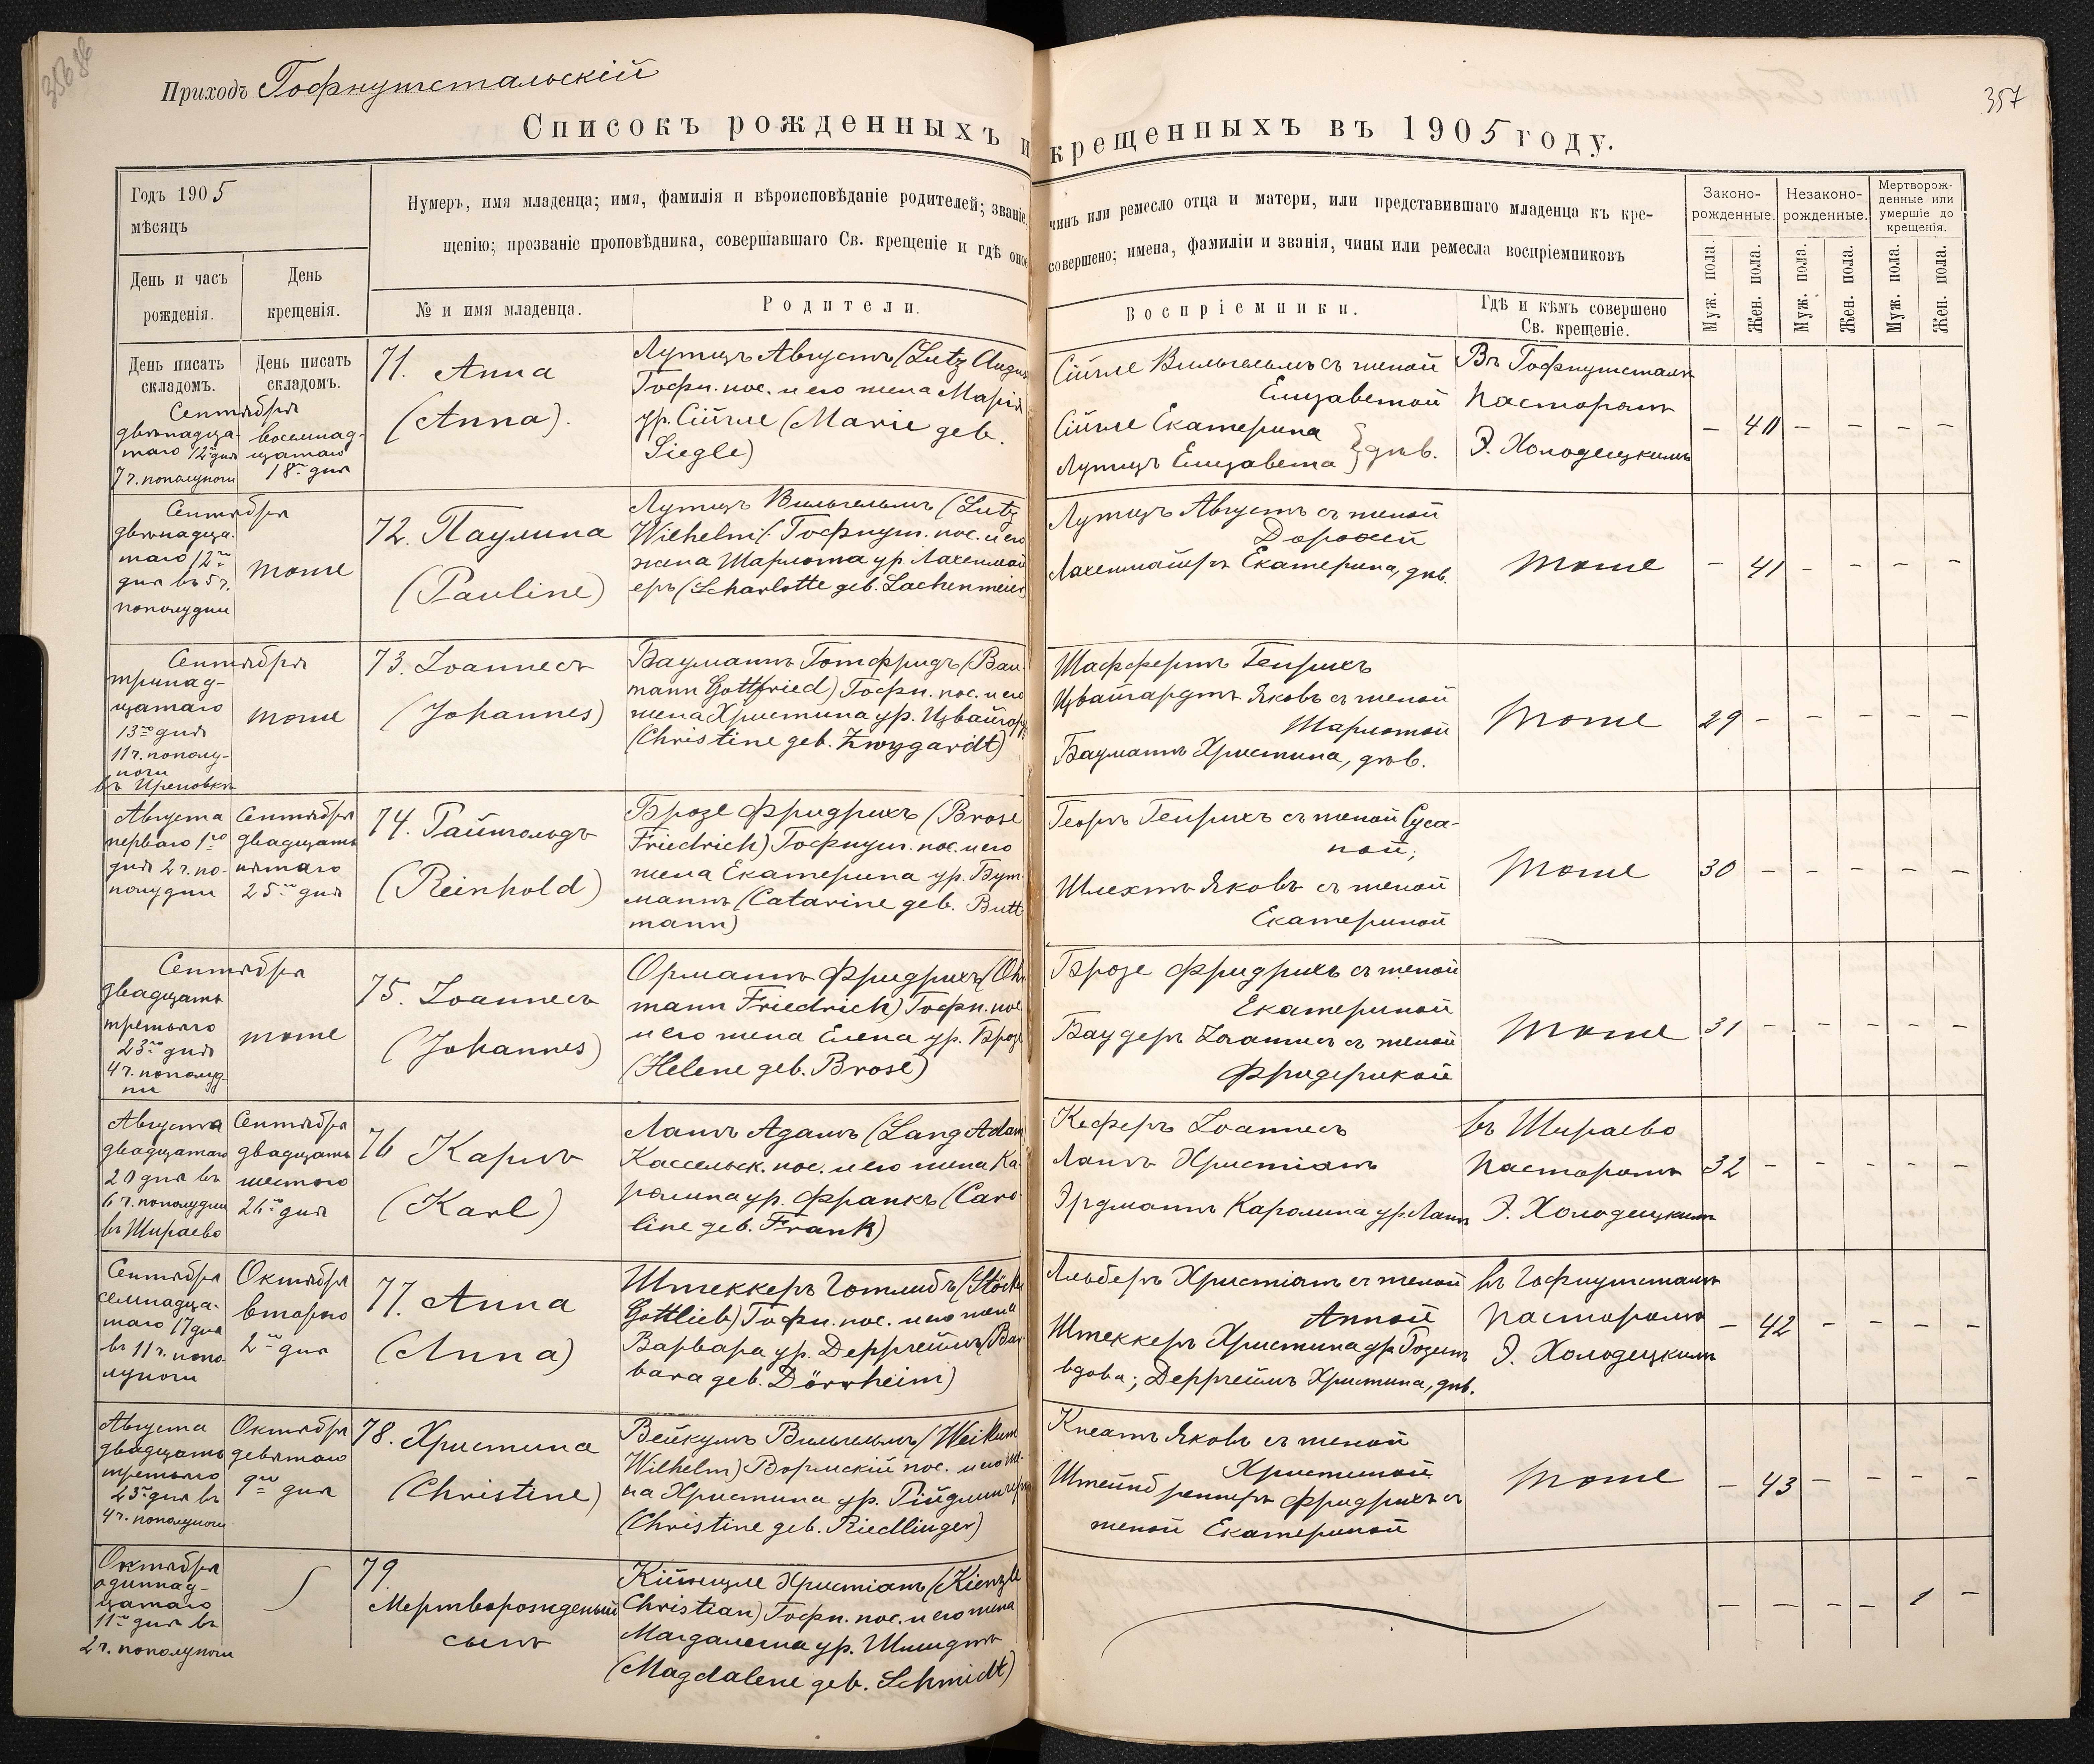 Приходъ Гофнугстальскій
357
Списокъ рожденныхъ и крещенныхъ въ 1905 году.
Годъ 1905
мѣсяцъ
День и часъ
рожденія.
День
крещенія.
Нумеръ, имя младенца; имя, фамилія и вѣроисповѣданіе родителей; званіе, чинъ или ремесло отца и матери, или представившаго младенца къ кре-
щенію; прозваніе проповѣдника, совершавшаго Св. крещеніе и гдѣ оное совершено; имена, фамиліи и званія, чины или ремесла воспріемниковъ
№ и имя младенца.
Родители.
Воспріемники.
Гдѣ и кѣмъ совершено
Св. крещеніе.
Законо-
рожденные.
Незаконо-
рожденные.
Мертворож-
денные или
умершіе до
крещенія.
Муж. пола.
Жен. пола.
Муж. пола.
Жен. пола.
Муж. пола.
Жен. пола.
День писать
складомъ.
День писать
складомъ.
Сентября
двѣнадца-
таго 12го дня
7 ч. пополуночи
восемнад-
цатаго
18го дня
71. Анна
(Anna).
Лутцъ Августъ (Lutz August
Гофн. пос. и его жена Марія
ур. Сійгле (Marie geb.
Siegle)
Сійгле Вильгельмъ съ женой
Елизаветой
Сійгле Екатерина
Лутцъ Елизавета } дѣв.
Въ Гофнугсталѣ
Пасторомъ
Э. Холодецкимъ
– 40 – – – –
Сентября
двѣнадца-
таго 12го
дня въ 5 ч.
пополудни
тоже
72. Паулина
(Pauline)
Лутцъ Вильгельмъ (Lutz
Wilhelm) Гофнуг. пос. и его
жена Шарлота ур. Лахенмай
еръ (Scharlotte geb. Lachenmeier)
Лутцъ Августъ съ женой
Доротей
Лахенмайеръ Екатерина, дѣв.
тоже
– 41 – – – –
Сентября
тринад-
цатаго
13го дня
11 ч. пополу-
ночи
въ Ирековкѣ
тоже
73. Іоаннесъ
(Johannes)
Бауманнъ Готфридъ (Bau-
mann Gottfried) Гофн. пос. и его
жена Христина ур. Цвайгардтъ
(Christine geb. Zwygardt)
Шаффертъ Генрихъ
Цвайгардтъ Яковъ съ женой
Шарлотой
Бауманнъ Христина, дѣв.
тоже
29 – – – – –
Августа
перваго 1го
дня 2 ч. по-
полудни
Сентября
двадцать
пятаго
25го дня
74. Райнгольдъ
(Reinhold)
Брозе Фридрихъ (Brose
Friedrich) Гофнуг. пос. и его
жена Екатерина ур. Бут-
маннъ (Catarine geb. Butt-
mann)
Георгъ Генрихъ съ женой Суса-
ной;
Шлехтъ Яковъ съ женой
Екатериной
тоже
30 – – – – –
Сентября
двадцать
третьяго
23го дня
4 ч. пополуд-
ни
тоже
75. Іоаннесъ
(Johannes)
Орманнъ Фридрихъ (Ohr-
mann Friedrich) Гофн. пос.
и его жена Елена ур. Брозе
(Helene geb. Brose)
Брозе Фридрихъ съ женой
Екатериной
Баудеръ Іоаннесъ съ женой
Фридерикой
тоже
31 – – – – –
Августа
двадцатаго
20 дня въ
6 ч. пополудни
въ Шираево
Сентября
двадцать
шестого
26го дня
76 Карлъ
(Karl)
Лангъ Адамъ (Lang Adam
Кассельск. пос. и его жена Ка-
ролина ур. Франкъ (Caro-
line geb. Frank)
Кеферъ Іоаннесъ
Лангъ Христіанъ
Эрдманнъ Каролина ур. Лангъ
въ Шираево
Пасторомъ
Э. Холодецкимъ
32 – – – – –
Сентября
семнадца-
таго 17 дня
въ 11 ч. попо-
луночи
Октября
второго
2го дня
77. Анна
(Anna)
Штеккеръ Готлибъ (Stöcker
Gottlieb) Гофн. пос. и его жена
Варвара ур. Дерргеймъ (Bar-
bara geb. Dörrheim)
Альберъ Христіанъ съ женой
Анной
Штеккеръ Христина ур. Гозинъ
вдова; Дерргеймъ Христина, дѣв.
въ Гофнугсталѣ
Пасторомъ
Э. Холодецкимъ
– 42 – – – –
Августа
двадцать
третьяго
23го дня въ
4 ч. пополуночи
Октября
девятаго
9го дня
78. Христина
(Christine)
Вейкумъ Вильгельмъ (Weikum
Wilhelm) Вормскій пос. и его же-
на Христина ур. Рійдлингеръ
(Christine geb. Riedlinger)
Кнеатъ Яковъ съ женой
Христиной
Штейнбреннеръ Фридрихъ съ
женой Екатериной
тоже
– 43 – – – –
Октября
одиннад-
цатаго
11го дня въ
2 ч. пополуночи
79
Мертворожденый
сынъ
Кійнцле Христіанъ (Kienzle
Christian) Гофн. пос. и его жена
Магдалена ур. Шмидтъ
(Magdalene geb. Schmidt)
– – – – 1 –